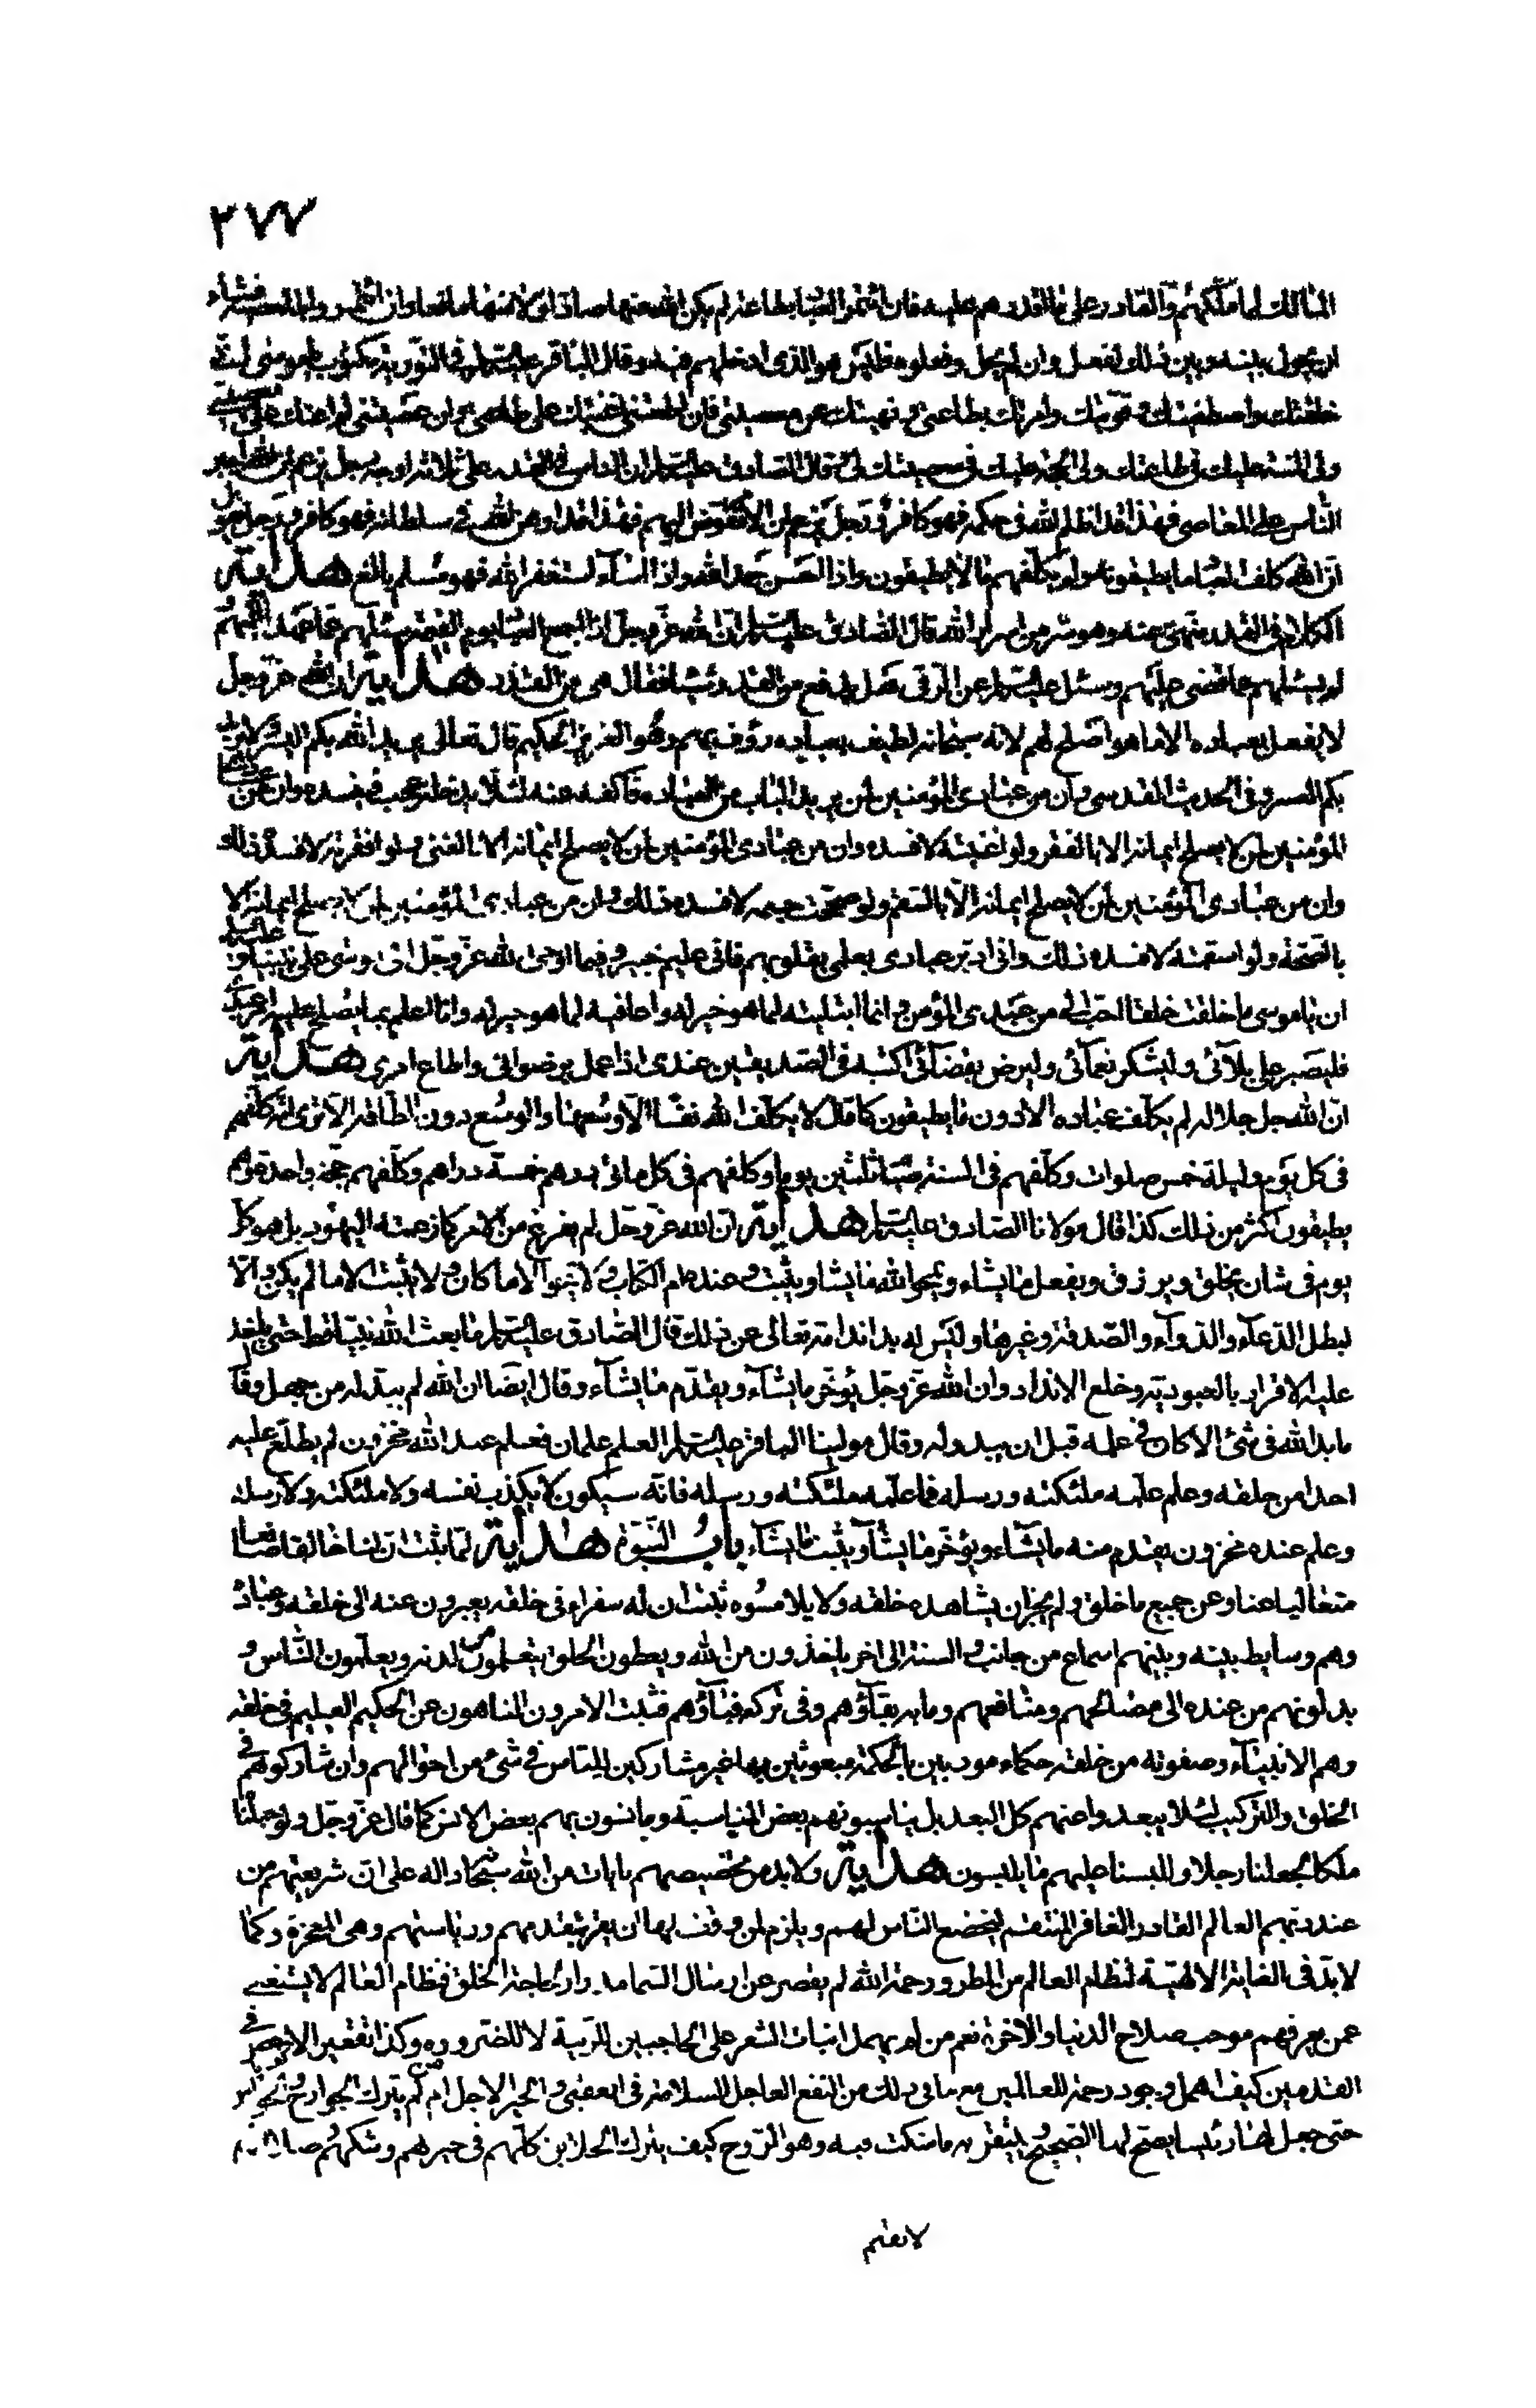 ٢٧٧
المالك لما ملكهم والقادر على ما اقدرهم عليه فان ائتمر العباد بطاعته لم يكن الله عنها صادا ولا منها مانعا وان ائتمروا بمعصيته فشاء
ان يحول بينه وبين ذلك لفعل وان لم يحل وفعلوه فليس هو الذى ادخلهم فيه وقال الباقر عليه السلام فى التورية مكتوب يا موسى انى
خلقتك واصطفيتك وقويتك وامرتك بطاعتى ونهيتك عن معصيتى فان اطعتنى اعنتك على طاعتى وان عصيتنى لم اعنك على معصيتى
ولى المنة عليك فى طاعتك ولى الحجة عليك فى معصيتك لى وقال الصادق عليه السلام ان الناس فى القدر على ثلاثة اوجه رجل يزعم ان الله اجبر
الناس على المعاصى فهذا قد اظلم الله فى حكمه فهو كافر ورجل يزعم ان الامر مفوض اليهم فهذا قد اوهن الله فى سلطانه فهو كافر ورجل يقول
ان الله كلف العباد ما يطيقون ولم يكلفهم ما لا يطيقون واذا احسن حمد الله واذا اساء استغفر الله فهو مسلم بالغ هداية
الكلام فى القدر منهى عنه وهو سر من اسرار الله قال الصادق عليه السلام ان الله عز وجل اذا جمع العباد يوم القيمة سئلهم عما عهد اليهم
لم يسئلهم عما قضى عليهم وسئل عليه السلام عن الرقى هل يدفع من القدر شيئا فقال هى من القدر هداية ان الله عز وجل
لا يفعل بعباده الا ما هو اصلح لهم لانه سبحانه لطيف بعباده رؤف بهم وهو العزيز الحكيم قال تعالى يريد الله بكم اليسر ولا يريد
بكم العسر وفى الحديث القدسى وان من عبادى المؤمنين لمن يريد الباب من العباده فاكفه عنه لئلا يدخله عجب فيفسده وان من عبادى
المؤمنين لمن لا يصلح ايمانه الا بالفقر ولو اغنيته لافسده وان من عبادى المؤمنين لمن لا يصلح ايمانه الا بالغنى ولو افقرته لافسده ذلك
وان من عبادى المؤمنين لمن لا يصلح ايمانه الا بالسقم ولو صححت جسمه لافسده ذلك وان من عبادى المؤمنين لمن لا يصلح ايمانه الا
بالصحة ولو اسقمته لافسده ذلك وانى ادبر عبادى بعلمى بقلوبهم فانى عليم خبير وفيما اوحى الله عز وجل الى موسى على نبينا و عليه السلام
ان يا موسى ما خلقت خلقا احب الى من عبدى المؤمن وانما ابتليته لما هو خير له واعافيه لما هو خير له وانا اعلم بما يصلح عليه عبدى
فليصبر على بلائى وليشكر نعمائى وليرض بقضائى اكتبه فى الصديقين عندى اذا عمل برضوانى واطاع امرى هداية
ان الله جل جلاله لم يكلف عباده الا دون ما يطيقون كما قال لا يكلف الله نفسا الا وسعها والوسع دون الطاقة الا ترى انه كلفهم
فى كل يوم وليلة خمس صلوات وكلفهم فى السنة صيام ثلثين يوما وكلفهم فى كل مائى درهم خمسة دراهم وكلفهم حجة واحدة وهم
يطيقون اكثر من ذلك كذا قال مولانا الصادق عليه السلام هداية ان الله عز وجل لم يفرغ من الامر كما زعمته اليهود بل هو كل
يوم فى شان يخلق ويرزق ويفعل ما يشاء ويمحوا الله ما يشاء ويثبت وعنده ام الكتاب ولا يمحوا الا ما كان ولا يثبت الا ما لم يكن والا
لبطل الدعاء والدواء والصدقة وغيرها وليس له بدا ندامة تعالى عن ذلك قال الصادق عليه السلام ما بعث الله نبيا قط حتى ياخذ
عليه الاقرار بالعبودية وخلع الانداد وان الله عز وجل يؤخر ما يشاء ويقدم ما يشاء وقال ايضا ان الله لم يبد له من جهل وقال
ما بدا لله فى شئ الا كان فى علمه قبل ان يبدو له وقال مولينا الباقر عليه السلام العلم علمان فعلم عند الله مخزون لم يطلع عليه
احدا من خلقه وعلم علمه ملئكته ورسله فما علمه ملئكته ورسله فانه سيكون لا يكذب نفسه ولا ملئكته ولا رسله
وعلم عنده مخزون يقدم منه ما يشاء ويؤخر ما يشاء ويثبت ما يشاء باب النبوة هداية لما ثبت ان لنا خالقا صانعا
متعاليا عنا وعن جميع ما خلق ولم يجز ان يشاهده خلقه ولا يلامسوه ثبت ان له سفراء فى خلقه يعبرون عنه الى خلقه وعباده
وهم وسايط بينه وبينهم اسماع من جانب والسنة الى اخر ياخذون من الله ويعطون الخلق يتعلمون من لدنه ويعلمون الناس و
يدلونهم من عنده الى مصالحهم ومنافعهم وما به بقاؤهم وفى تركه فناؤهم فثبت الامرون الناهون عن الحكيم العليم فى خلقه
وهم الانبياء وصفوته من خلقه حكماء مودبين بالحكمة مبعوثين بها غير مشاركين للناس فى شئ من احوالهم وان شاركوهم فى
الخلق والتركيب لئلا يبعدوا عنهم كل البعد بل يناسبونهم بعض المناسبة ويانسون بهم بعض الانس كما قال عز وجل ولو جعلناه
ملكا لجعلناه رجلا وللبسنا عليهم ما يلبسون هداية ولا بد من تخصيصهم بايات من الله سبحانه دالة على ان شريعتهم من
عند ربهم العالم القادر الغافر المنتقم ليخضع الناس لهم ويلزم لمن وقف بها ان يقر بتقدمهم ورياستهم وهى المعجزة وكما
لا بد فى العناية الالهية لنظام العالم من المطر ورحمة الله لم يقصر عن ارسال السماء مدرارا لحاجة الخلق فنظام العالم لا يستغنى
عمن يعرفهم موجب صلاح الدنيا والاخرة نعم من لم يهمل انبات الشعر على الحاجبين للزينة لا للضرورة وكذا تقعير الاخمص فى
القدمين كيف اهمل وجود رحمة للعالمين مع ما فى ذلك من النفع العاجل للسلامة فى العقبى والخير الاجل ام من لم يترك الجوارح والحواس
حتى جعل لها رئيسا يصحح لها الصحيح ويتيقن به ما شكت فيه وهو الروح كيف يترك الخلايق كلهم فى حيرتهم وشكهم
لا يقيم